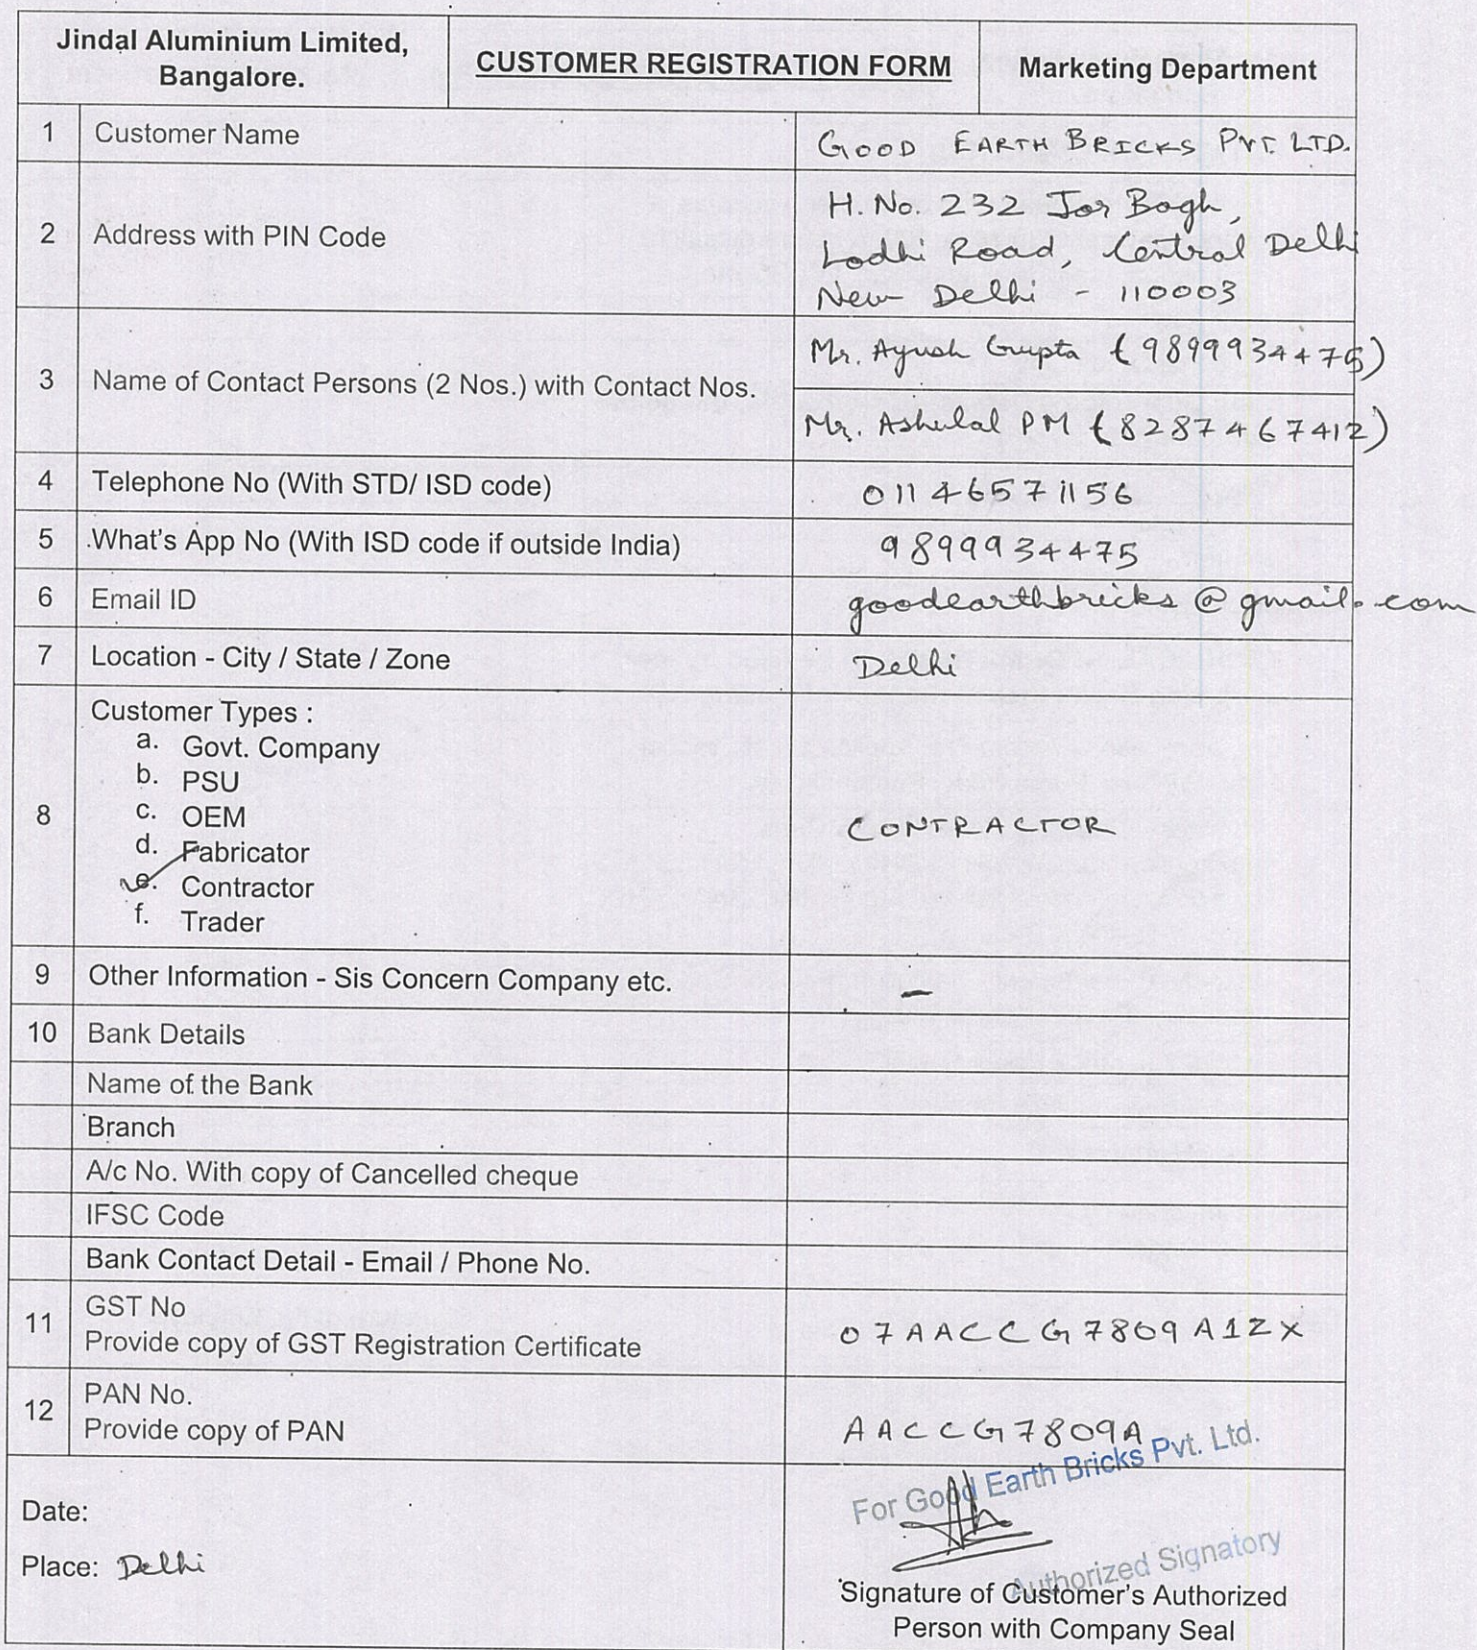 Jindal Aluminium Limited,
Bangalore.
CUSTOMER REGISTRATION FORM
Marketing Department
1 Customer Name
GOOD EARTH BRICKS PVT. LTD.
2 Address with PIN Code
H. No. 232 Jor Bagh,
Lodhi Road, Central Delhi
New Delhi - 110003
3 Name of Contact Persons (2 Nos.) with Contact Nos.
Mr. Ayush Gupta (9899934475)
Mr. Ashulal PM (8287467412)
4 Telephone No (With STD/ ISD code)
01146571156
5 What's App No (With ISD code if outside India)
9899934475
6 Email ID
goodearthbricks@gmail.com
7 Location - City / State / Zone
Delhi
8 Customer Types :
a. Govt. Company
b. PSU
c. OEM
d. Fabricator
e. Contractor
f. Trader
CONTRACTOR
9 Other Information - Sis Concern Company etc.
-
10 Bank Details
Name of the Bank
Branch
A/c No. With copy of Cancelled cheque
IFSC Code
Bank Contact Detail - Email / Phone No.
11 GST No
Provide copy of GST Registration Certificate
07AACCG7809A1ZX
12 PAN No.
Provide copy of PAN
AACCG7809A
For Good Earth Bricks Pvt. Ltd.
Authorized Signatory
Date:
Place: Delhi
Signature of Customer's Authorized
Person with Company Seal